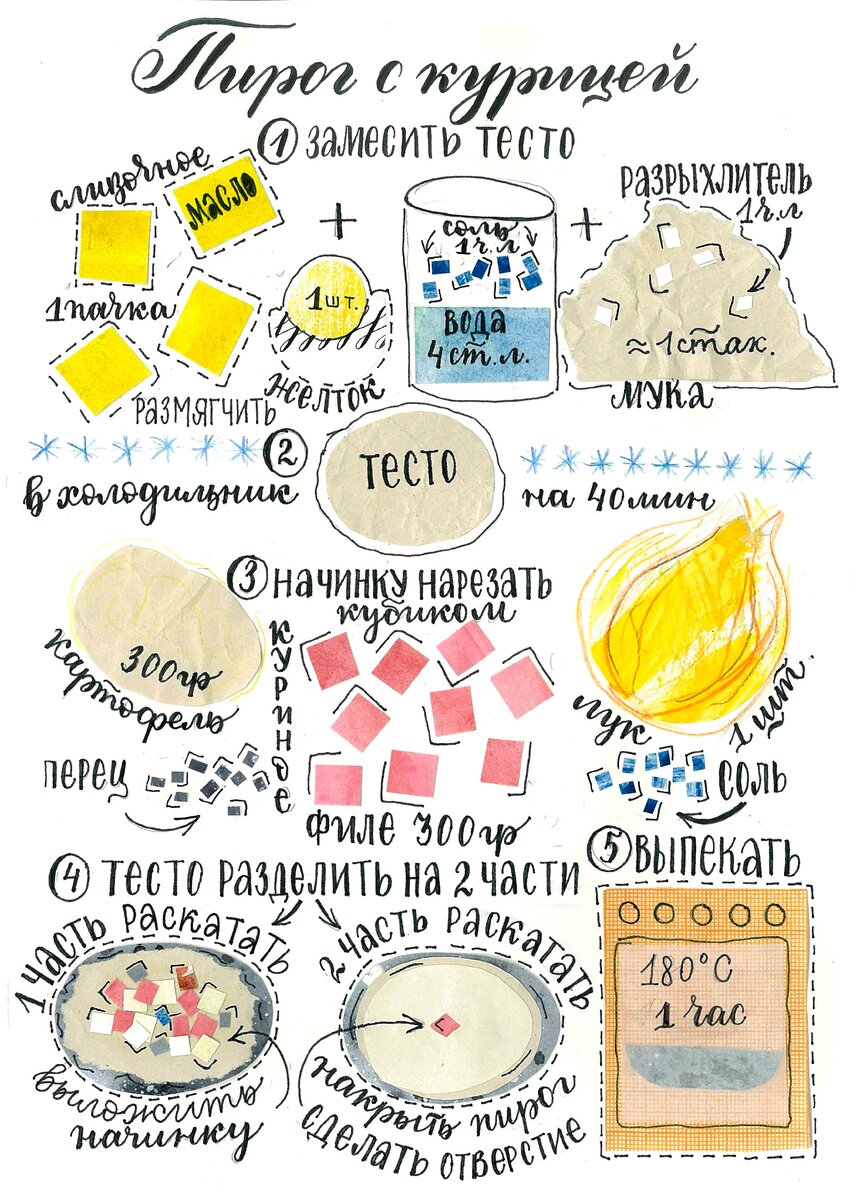 Пирог с курицей
1 ЗАМЕСИТЬ ТЕСТО
сливочное
МАСЛО
1 пачка
РАЗМЯГЧИТЬ
+
1 шт.
ЖЕЛТОК
соль
1 ч.л
ВОДА
4 ст.л.
+
РАЗРЫХЛИТЕЛЬ
1 ч.л
≈ 1 стак.
МУКА
2
в холодильник
ТЕСТО
на 40 мин
3 НАЧИНКУ НАРЕЗАТЬ
кубиком
300гр
картофель
КУРИНОЕ
ФИЛЕ 300гр
лук 1 шт.
ПЕРЕЦ
СОЛЬ
4 ТЕСТО РАЗДЕЛИТЬ НА 2 ЧАСТИ
1 ЧАСТЬ РАСКАТАТЬ
выложить
начинку
2 ЧАСТЬ РАСКАТАТЬ
накрыть пирог
СДЕЛАТЬ ОТВЕРСТИЕ
5 ВЫПЕКАТЬ
180°С
1 час